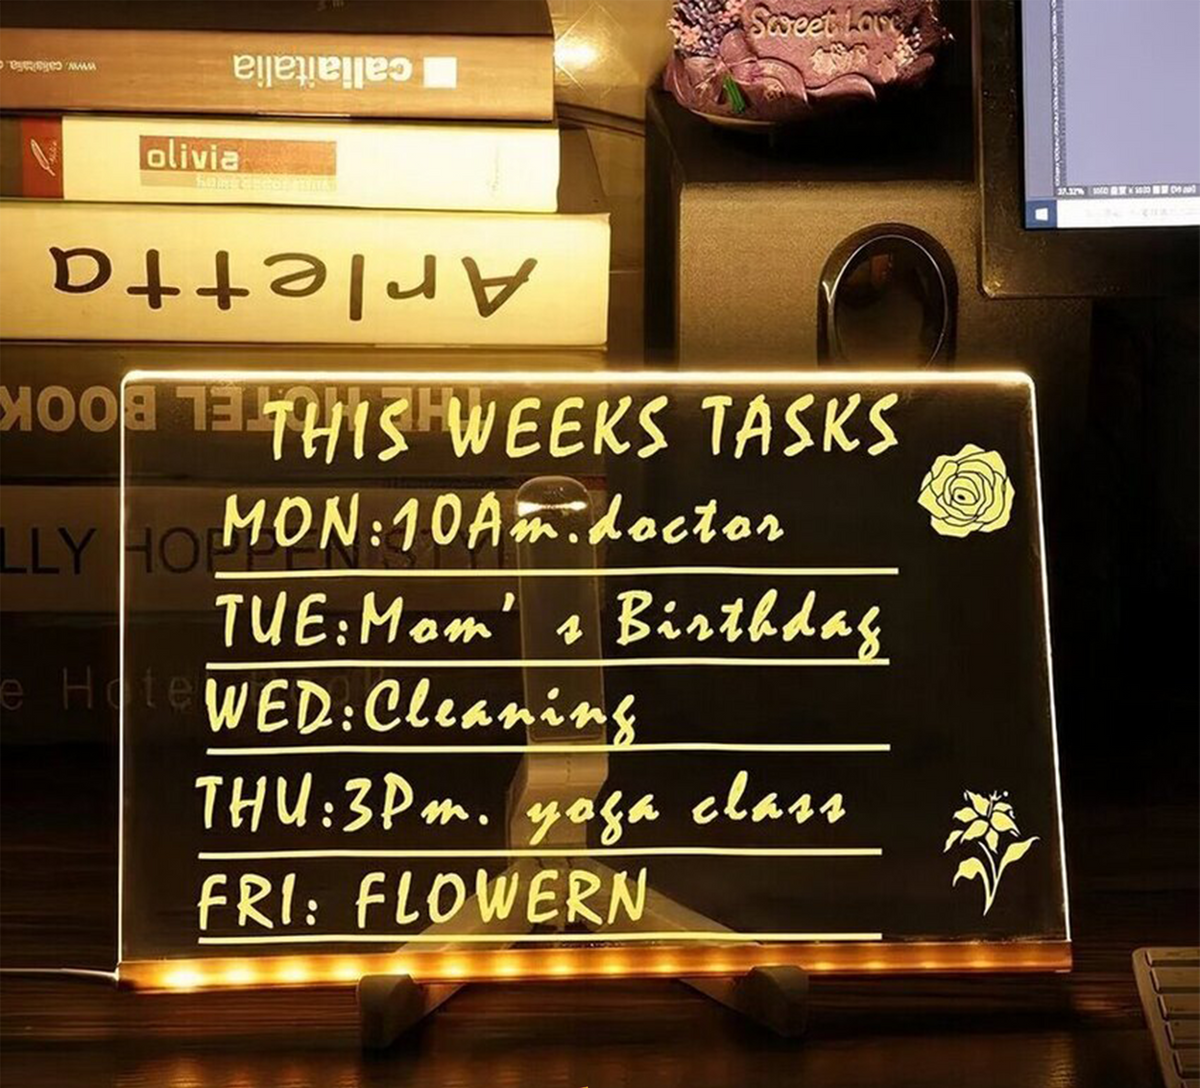 Sweet Love
www. caliaitalia
caliaitalia
olivia
Arletta
THE HOTEL BOOK
THIS WEEKS TASKS
MON:10Am.doctor
TUE:Mom's Birthdag
WED:Cleaning
THU:3Pm. yoga class
FRI: FLOWERN
LLY HOPPEN STYL
e Hotel Book
37.52%